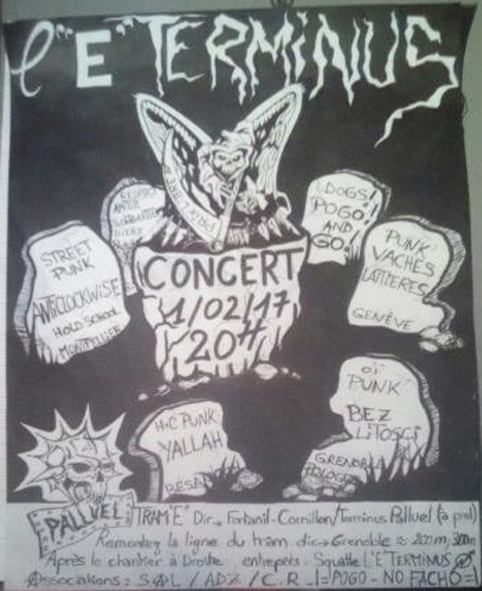 l'"E" TERMINUS
PRIX LIBRE
CONCERT
1/02/17
20H
DOGS!
POGO!
AND
GO!
STREET
PUNK
ANTICLOCKWISE
HOLD SCHOOL
MONTPELLIER
PUNK
VACHES
LAITIERES
GENÈVE
Oï
PUNK
BEZ
LITOSCI
GRENOBLE
POLOGNE
H.C PUNK
YALLAH
BESA
PALLUEL
TRAM "E" Dir→ Fontanil-Cornillon/Terminus Palluel (à pied)
Remontez la ligne du tram dir→ Grenoble ≈ 200m, 300m
Après le chantier à Droite entrepôts - Squatte L'E TERMINUS
Associations: SAL / ADZ / C.R _I=POGO - NO FACHO =I